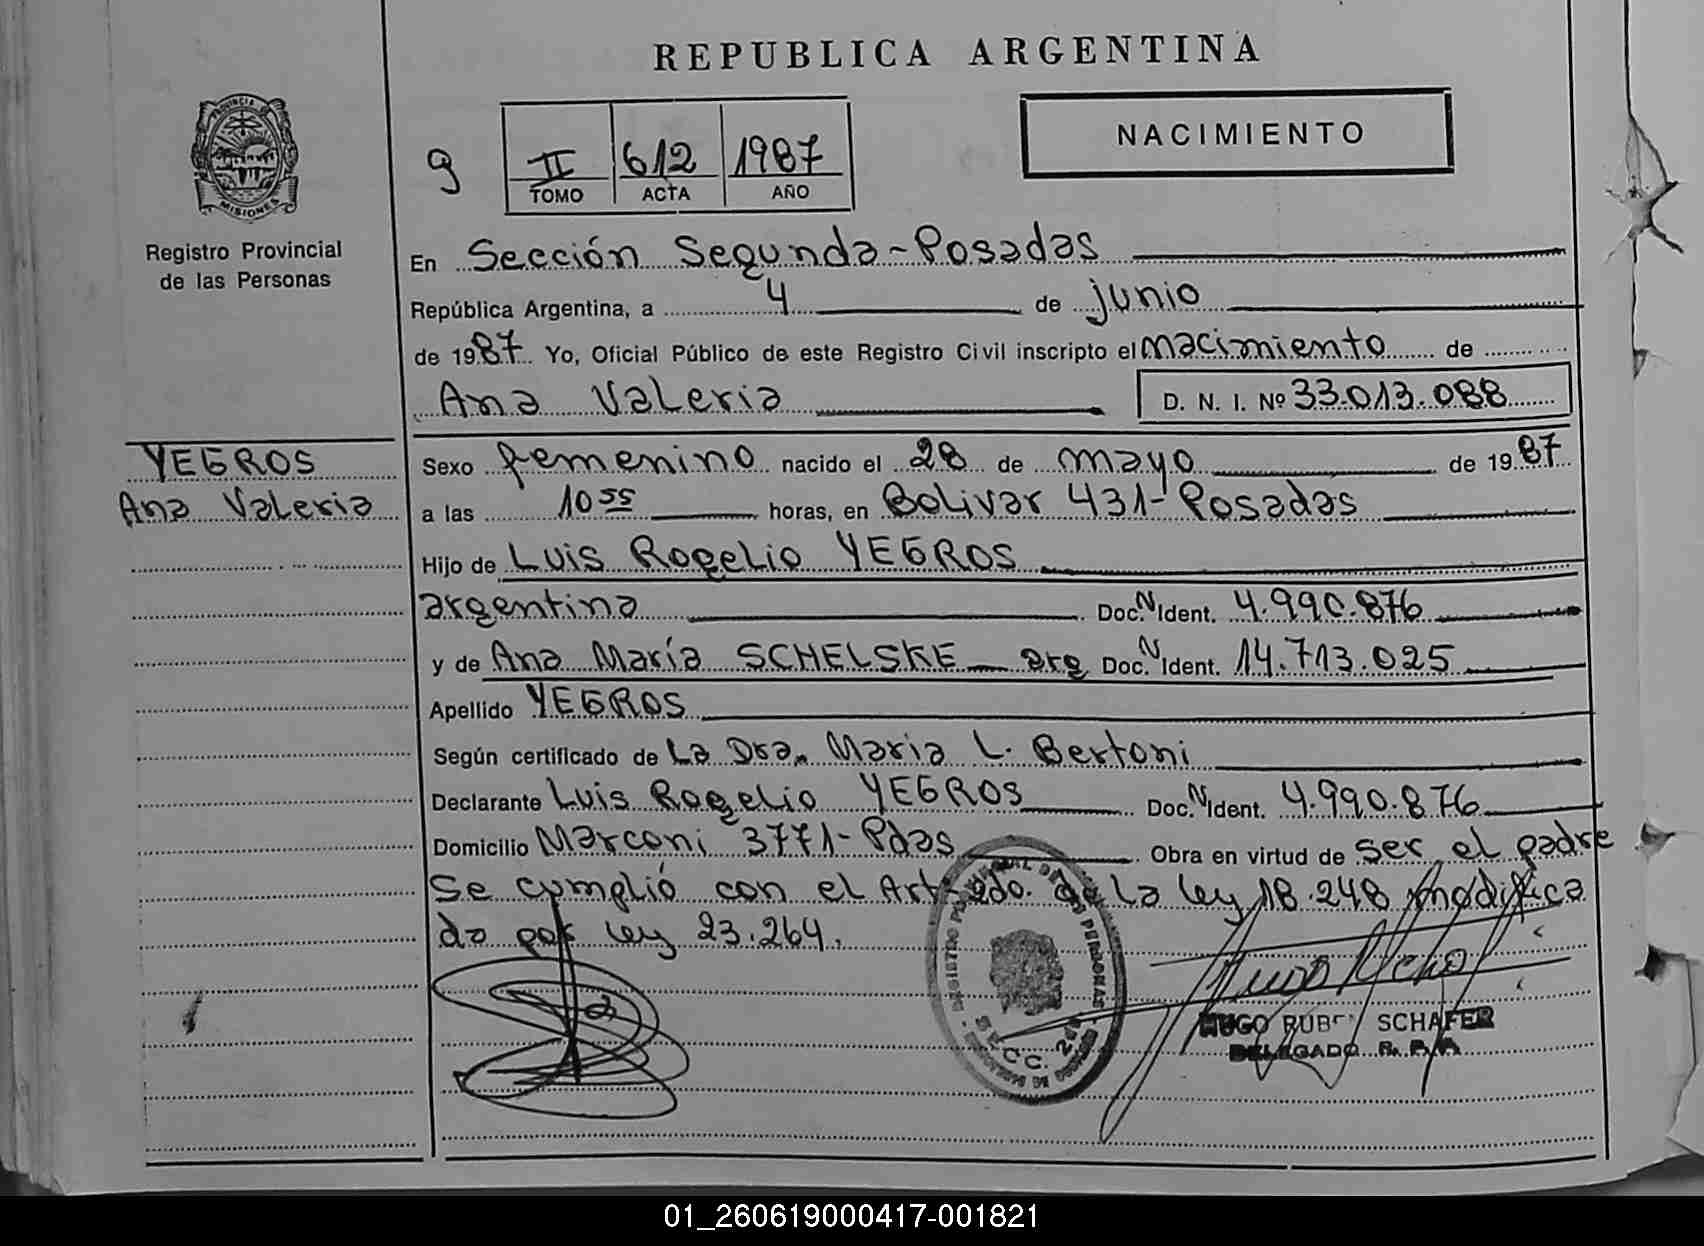 REPUBLICA ARGENTINA
PROVINCIA DE
MISIONES
Registro Provincial
de las Personas
9
II 612 1987
TOMO ACTA AÑO
NACIMIENTO
En Sección Segunda-Posadas
República Argentina, a 4 de junio
de 1987. Yo, Oficial Público de este Registro Civil inscripto el nacimiento de
Ana Valeria D. N. I. Nº 33.013.088
YEGROS
Ana Valeria
Sexo femenino nacido el 28 de mayo de 1987
a las 10 55 horas, en Bolivar 431-Posadas
Hijo de Luis Rogelio YEGROS
argentina Doc. N Ident. 4.990.876
y de Ana María SCHELSKE arg Doc. N Ident. 14.713.025
Apellido YEGROS
Según certificado de La Dra. Maria L. Bertoni
Declarante Luis Rogelio YEGROS Doc. N Ident. 4.990.876
Domicilio Marconi 3771-Pdas Obra en virtud de ser el padre
Se cumplió con el Art 2do. de La ley 18.248 modifica
do por ley 23.264.
SECC. 2da
HUGO RUBEN SCHAFER
DELEGADO R. P. P.
01_260619000417-001821